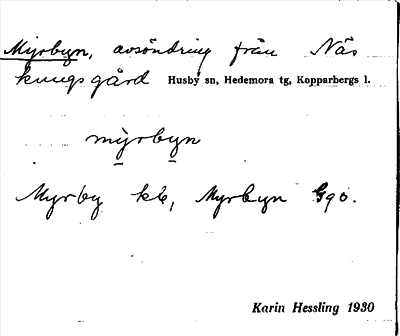 Myrbyn, avsöndring från Näs
kungsgård Husby sn, Hedemora tg, Kopparbergs l.
myrbyn
Myrby kb, Myrbyn G90.
Karin Hessling 1930